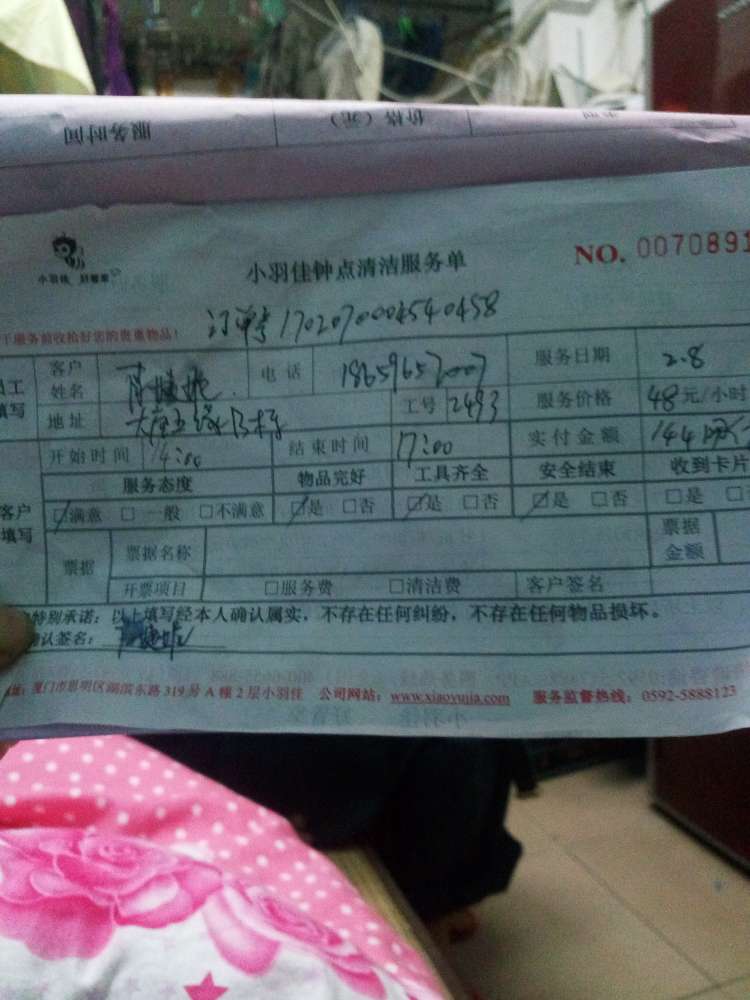 服务时间 价格（元）
小羽佳 好管家
小羽佳钟点清洁服务单 NO. 0070891
服务前收拾好您的贵重物品！ 订单号 1702070004540458
员工填写 客户姓名 电话 18659657007 服务日期 2.8
地址 工号 2493 服务价格 48元/小时
开始时间 14:00 结束时间 17:00 实付金额 144
服务态度 物品完好 工具齐全 安全结束 收到卡片
客户填写 ☑满意 □一般 □不满意 ☑是 □否 ☑是 □否 ☑是 □否 □是 □
票据 票据名称 票据金额
开票项目 □服务费 □清洁费 客户签名
特别承诺：以上填写经本人确认属实，不存在任何纠纷，不存在任何物品损坏。
确认签名：
地址：厦门市思明区湖滨东路319号A幢2层小羽佳 公司网站：www.xiaoyujia.com 服务监督热线：0592-5888123